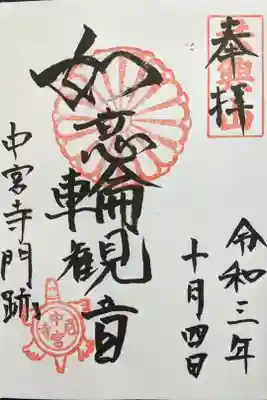 奉拝
令和三年
十月四日
如意輪観音
中宮寺門跡